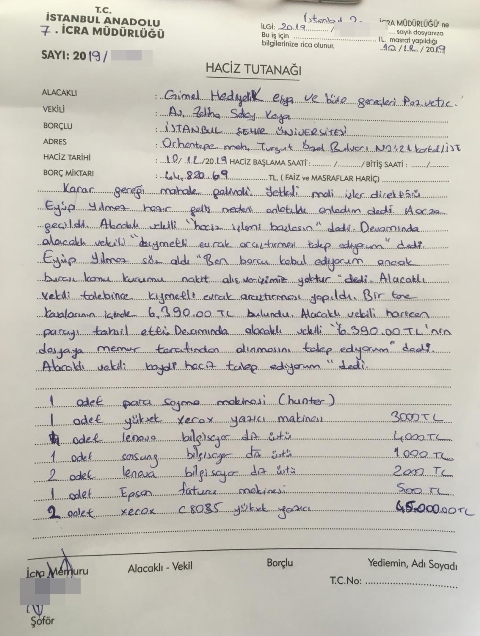 T.C.
İSTANBUL ANADOLU
7. İCRA MÜDÜRLÜĞÜ
SAYI: 2019/
İstanbul
İCRA MÜDÜRLÜĞÜ'ne
İLGİ: 2019 / sayılı dosyanıza
Bu iş için TL. masraf yapıldığı
bilgilerinize rica olunur. 10/12/2019
HACİZ TUTANAĞI
ALACAKLI : Gimel Hediyelik eşya ve büro gereçleri Paz. ve tic.
VEKİLİ : Av. Zeliha Kaya
BORÇLU : İSTANBUL ŞEHİR ÜNİVERSİTESİ
ADRES : Orhantepe mah. Turgut Özal Bulvarı No:21 kartal/İST
HACİZ TARİHİ : 10/12/2019 HACİZ BAŞLAMA SAATİ : ...../...../..... BİTİŞ SAATİ : ...../.....
BORÇ MİKTARI : 44.820.69 TL ( FAİZ ve MASRAFLAR HARİÇ)
Karar gereği mahale gelindi. Yetkili mali işler direktörü
Eyüp Yılmaz hazır geliş nedeni anlatıldı anladım dedi. Hacze
geçildi. Alacaklı vekili "haciz işlemi başlasın" dedi. Devamında
alacaklı vekili "kıymetli evrak araştırması talep ediyorum" dedi.
Eyüp Yılmaz söz aldı "Ben borcu kabul ediyorum ancak
burası kamu kurumu nakit alış verişimiz yoktur" dedi. Alacaklı
vekili talebince kıymetli evrak araştırması yapıldı. Bir tane
kasalarının içinde 6.390.00 TL bulundu. Alacaklı vekili haricen
parayı tahsil etti. Devamında alacaklı vekili "6.390.00 TL'nin
dosyaya memur tarafından alınmasını talep ediyorum" dedi.
Alacaklı vekili kaydi haciz talep ediyorum" dedi.
1 adet para sayma makinesi (hunter)
1 adet yüksek xerox yazıcı makinesi 3000 TL
adet lenova bilgisayar diz üstü 4000 TL
1 adet samsung bilgisayar diz üstü 1000 TL
2 adet lenova bilgisayar diz üstü 2000 TL
1 adet Epson fatura makinesi 500 TL
2 adet xerox C8035 yüksek yazıcı 45.000.00 TL
İcra Memuru
Alacaklı - Vekil
Borçlu
Yediemin, Adı Soyadı
T.C.No: ..............................
Şoför